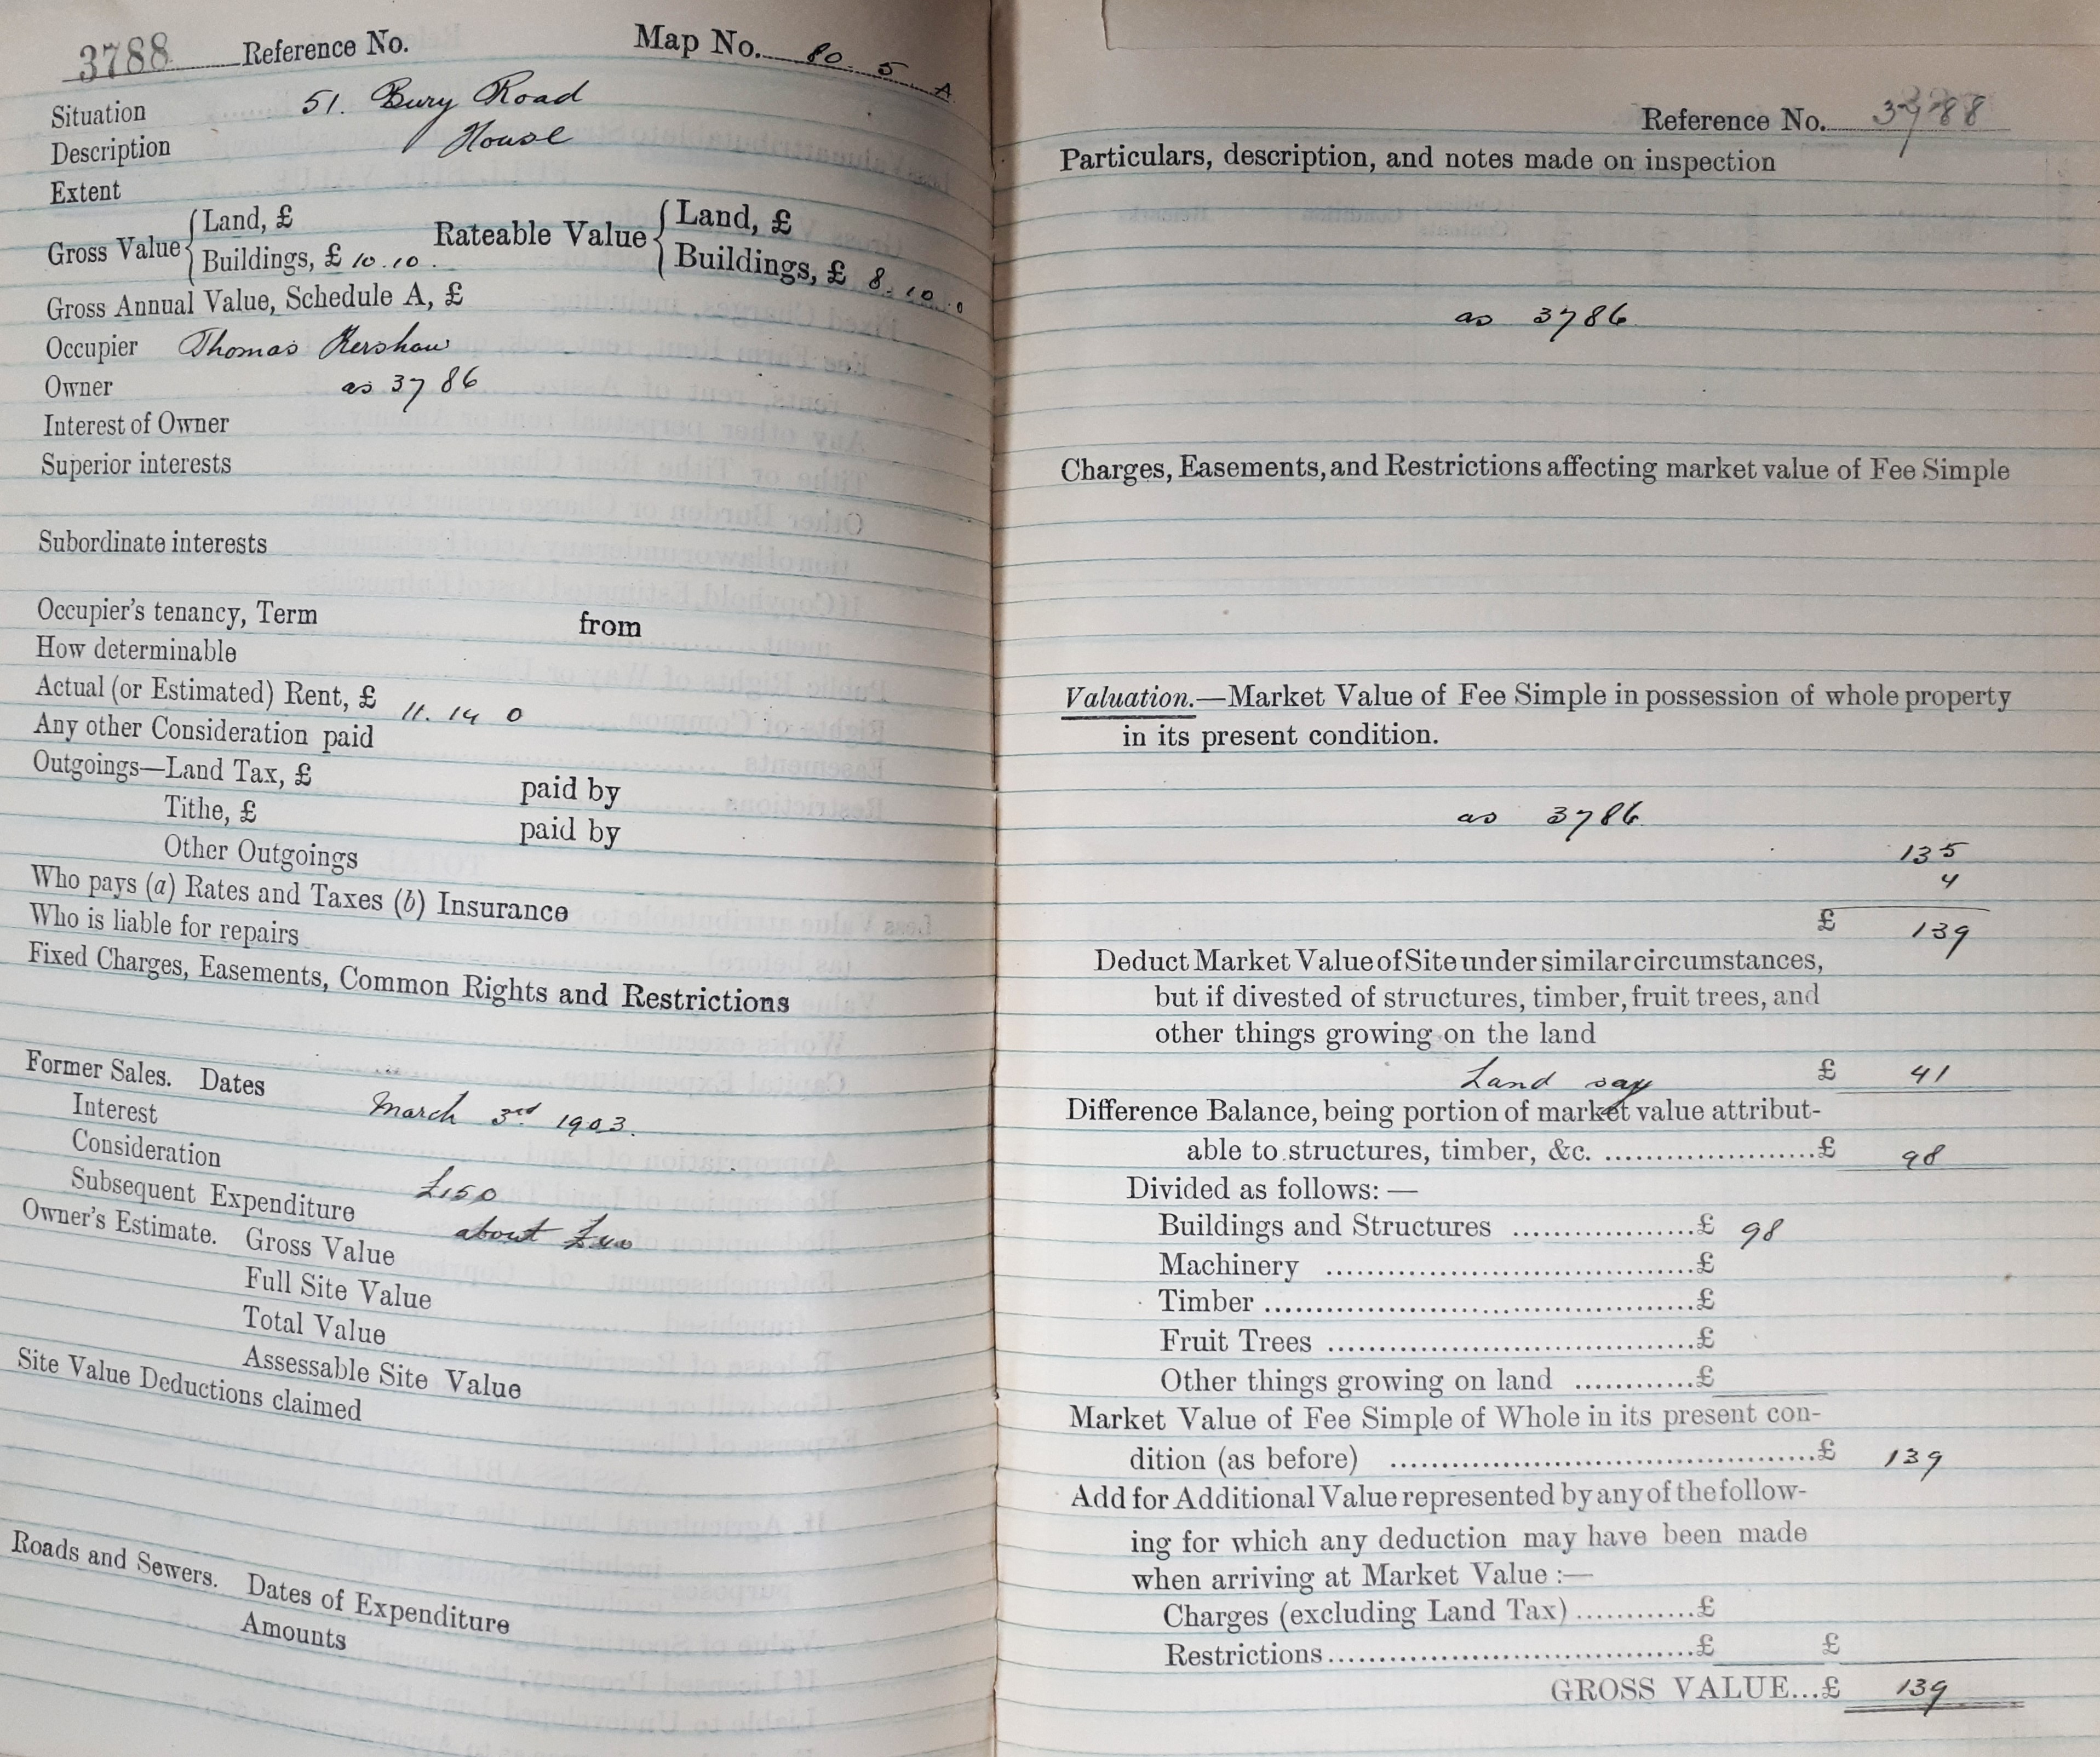 3788 Reference No. Map No. 80. 5 A
Situation 51. Bury Road
Description House
Extent
Gross Value { Land, £ Rateable Value { Land, £
Buildings, £ 10. 10. Buildings, £ 8. 10. 0
Gross Annual Value, Schedule A, £
Occupier Thomas Kershaw
Owner as 3786
Interest of Owner
Superior interests
Subordinate interests
Occupier's tenancy, Term from
How determinable
Actual (or Estimated) Rent, £ 11. 14 0
Any other Consideration paid
Outgoings—Land Tax, £ paid by
Tithe, £ paid by
Other Outgoings
Who pays (a) Rates and Taxes (b) Insurance
Who is liable for repairs
Fixed Charges, Easements, Common Rights and Restrictions
Former Sales. Dates March 3rd 1903.
Interest
Consideration £150
Subsequent Expenditure about
Owner's Estimate. Gross Value
Full Site Value
Total Value
Assessable Site Value
Site Value Deductions claimed
Roads and Sewers. Dates of Expenditure
Amounts
Reference No. 3788
Particulars, description, and notes made on inspection
as 3786
Charges, Easements, and Restrictions affecting market value of Fee Simple
Valuation.—Market Value of Fee Simple in possession of whole property
in its present condition.
as 3786
135
4
£ 139
Deduct Market Value of Site under similar circumstances,
but if divested of structures, timber, fruit trees, and
other things growing on the land
Land say £ 41
Difference Balance, being portion of market value attribut-
able to structures, timber, &c. ....................£ 98
Divided as follows: —
Buildings and Structures ..................£ 98
Machinery ....................................£
Timber ..........................................£
Fruit Trees ....................................£
Other things growing on land ............£
Market Value of Fee Simple of Whole in its present con-
dition (as before) ..........................................£ 139
Add for Additional Value represented by any of the follow-
ing for which any deduction may have been made
when arriving at Market Value :—
Charges (excluding Land Tax) ............£
Restrictions....................................£ £
GROSS VALUE...£ 139